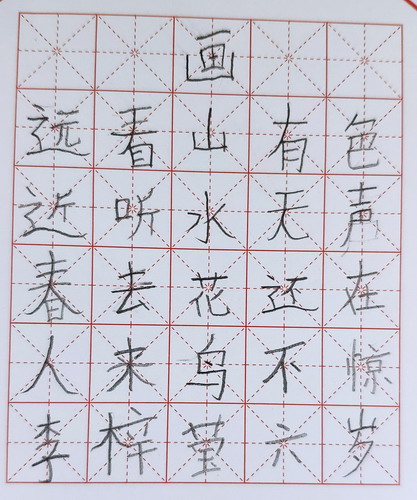 画
远看山有色
近听水无声
春去花还在
人来鸟不惊
李梓莹六岁